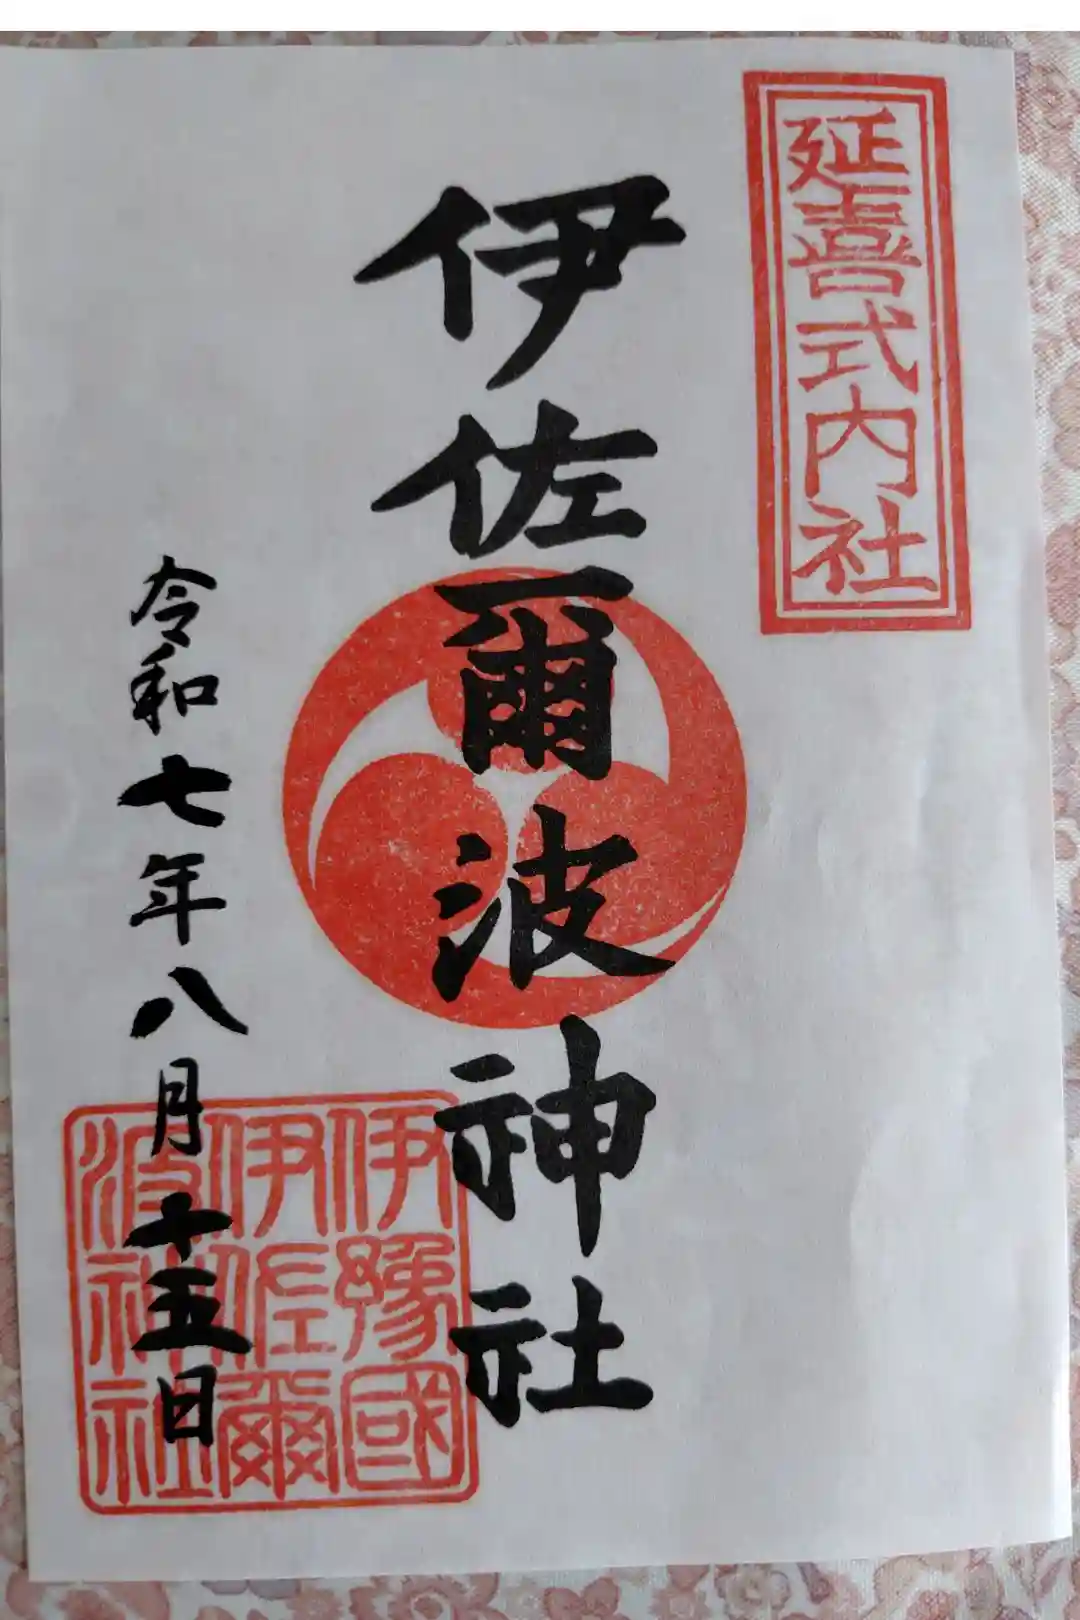 延喜式内社
伊佐爾波神社
令和七年八月十五日
伊豫國
伊佐爾
波神社